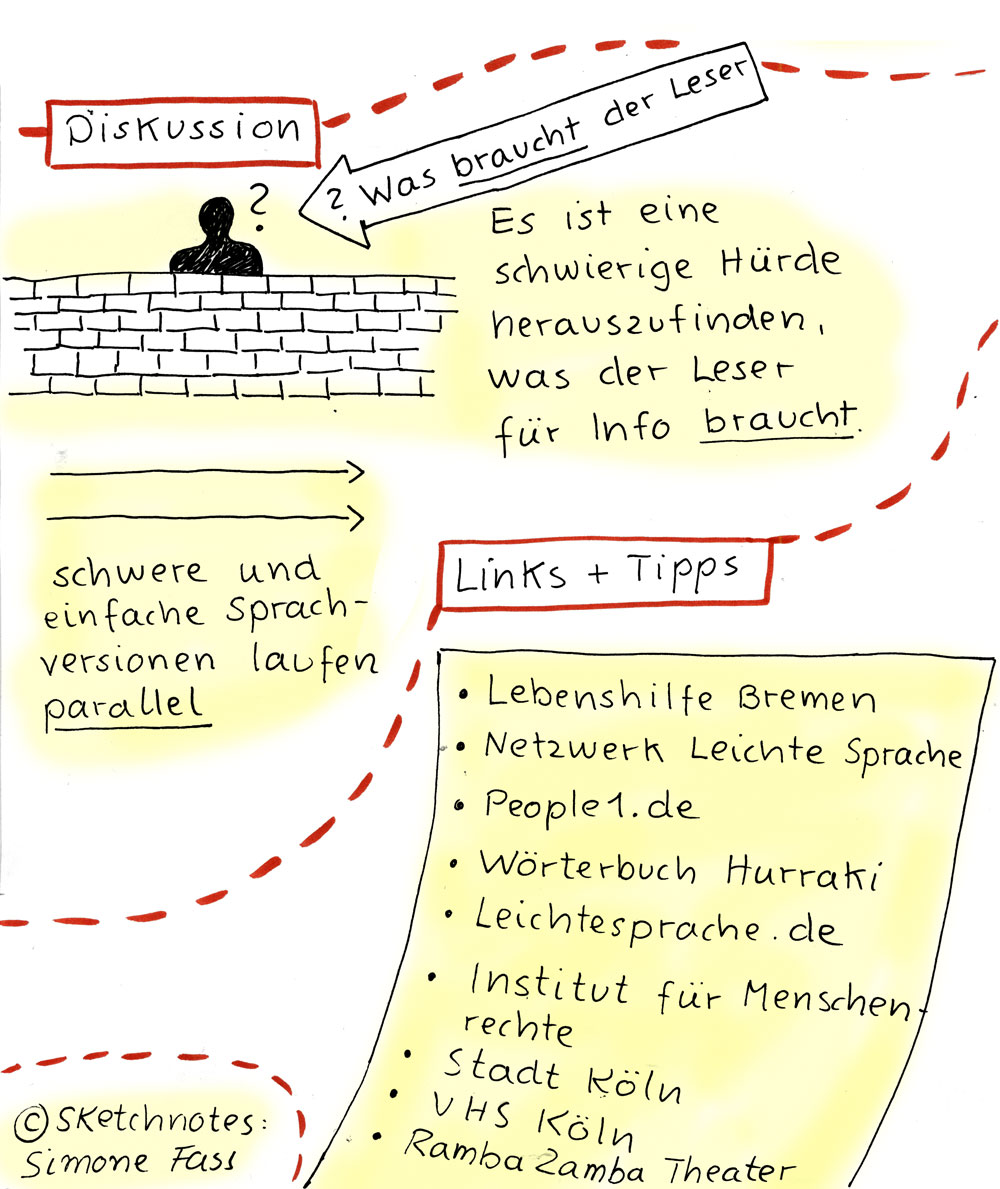 Diskussion
? Was braucht der Leser
?
Es ist eine
schwierige Hürde
herauszufinden,
was der Leser
für Info braucht.
schwere und
einfache Sprach-
versionen laufen
parallel
Links + Tipps
• Lebenshilfe Bremen
• Netzwerk Leichte Sprache
• People1.de
• Wörterbuch Hurraki
• Leichtesprache.de
• Institut für Menschen-
rechte
• Stadt Köln
• VHS Köln
• Ramba Zamba Theater
© Sketchnotes:
Simone Fass